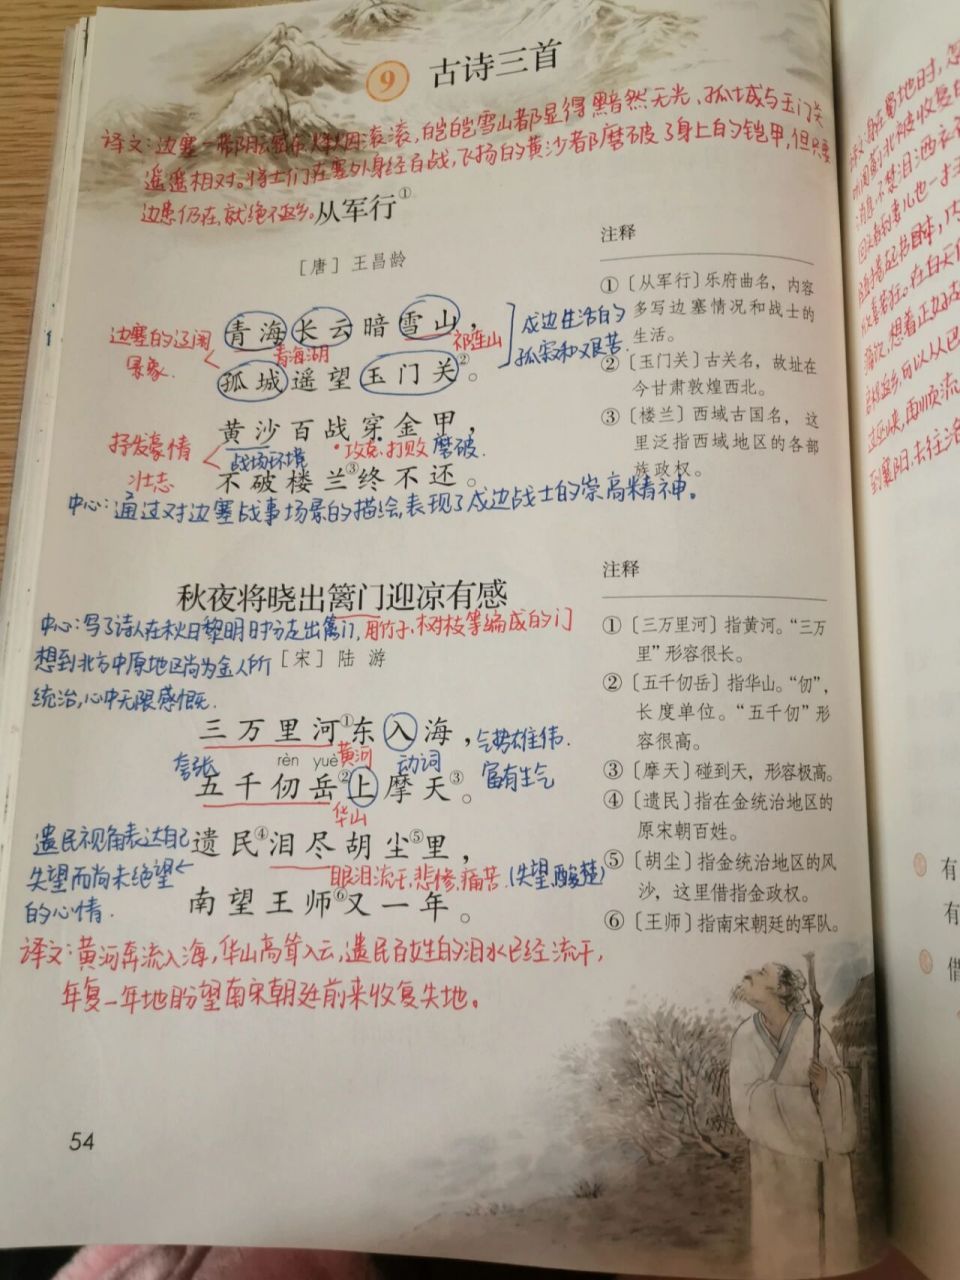 9 古诗三首
译文:边塞一带阴云密布,烽烟滚滚,皑皑雪山都显得黯然无光,孤城与玉门关
遥遥相对。将士们在塞外身经百战,飞扬的黄沙都磨破了身上的铠甲,但只要
边患仍在,就绝不返乡。
从军行①
[唐] 王昌龄
青海长云暗雪山,
边塞的辽阔
景象.
青海湖
祁连山
戍边生活的
孤寂和艰苦.
孤城遥望玉门关②。
黄沙百战穿金甲,
抒发豪情
壮志
战场环境
·攻克.打败
磨破.
不破楼兰③终不还。
中心:通过对边塞战事场景的描绘,表现了戍边战士的崇高精神。
注释
①〔从军行〕乐府曲名,内容
多写边塞情况和战士的
生活。
②〔玉门关〕古关名,故址在
今甘肃敦煌西北。
③〔楼兰〕西域古国名,这
里泛指西域地区的各部
族政权。
秋夜将晓出篱门迎凉有感
中心:写了诗人在秋日黎明时分走出篱门,
用竹子、树枝等编成的门
想到北方中原地区尚为金人所
统治,心中无限感慨.
[宋] 陆 游
三万里河①东入海,
气势雄伟.
富有生气
夸张
黄河
动词
rèn yuè
五千仞岳②上摩天③。
华山
遗民④泪尽胡尘⑤里,
遗民视角表达自己
失望而尚未绝望
的心情.
眼泪流干,悲惨、痛苦.
(失望,酸楚)
南望王师⑥又一年。
译文:黄河奔流入海,华山高耸入云,遗民百姓的泪水已经流干,
年复一年地盼望南宋朝廷前来收复失地。
注释
①〔三万里河〕指黄河。“三万
里”形容很长。
②〔五千仞岳〕指华山。“仞”,
长度单位。“五千仞”形
容很高。
③〔摩天〕碰到天,形容极高。
④〔遗民〕指在金统治地区的
原宋朝百姓。
⑤〔胡尘〕指金统治地区的风
沙,这里借指金政权。
⑥〔王师〕指南宋朝廷的军队。
54
有
有
借